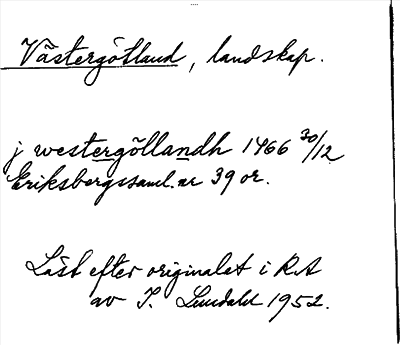 Västergötland, landskap.
j westergötlandh 1466 30/12
Eriksbergssaml. nr 39 or.
Läst efter originalet i RA
av I. Lundahl 1952.